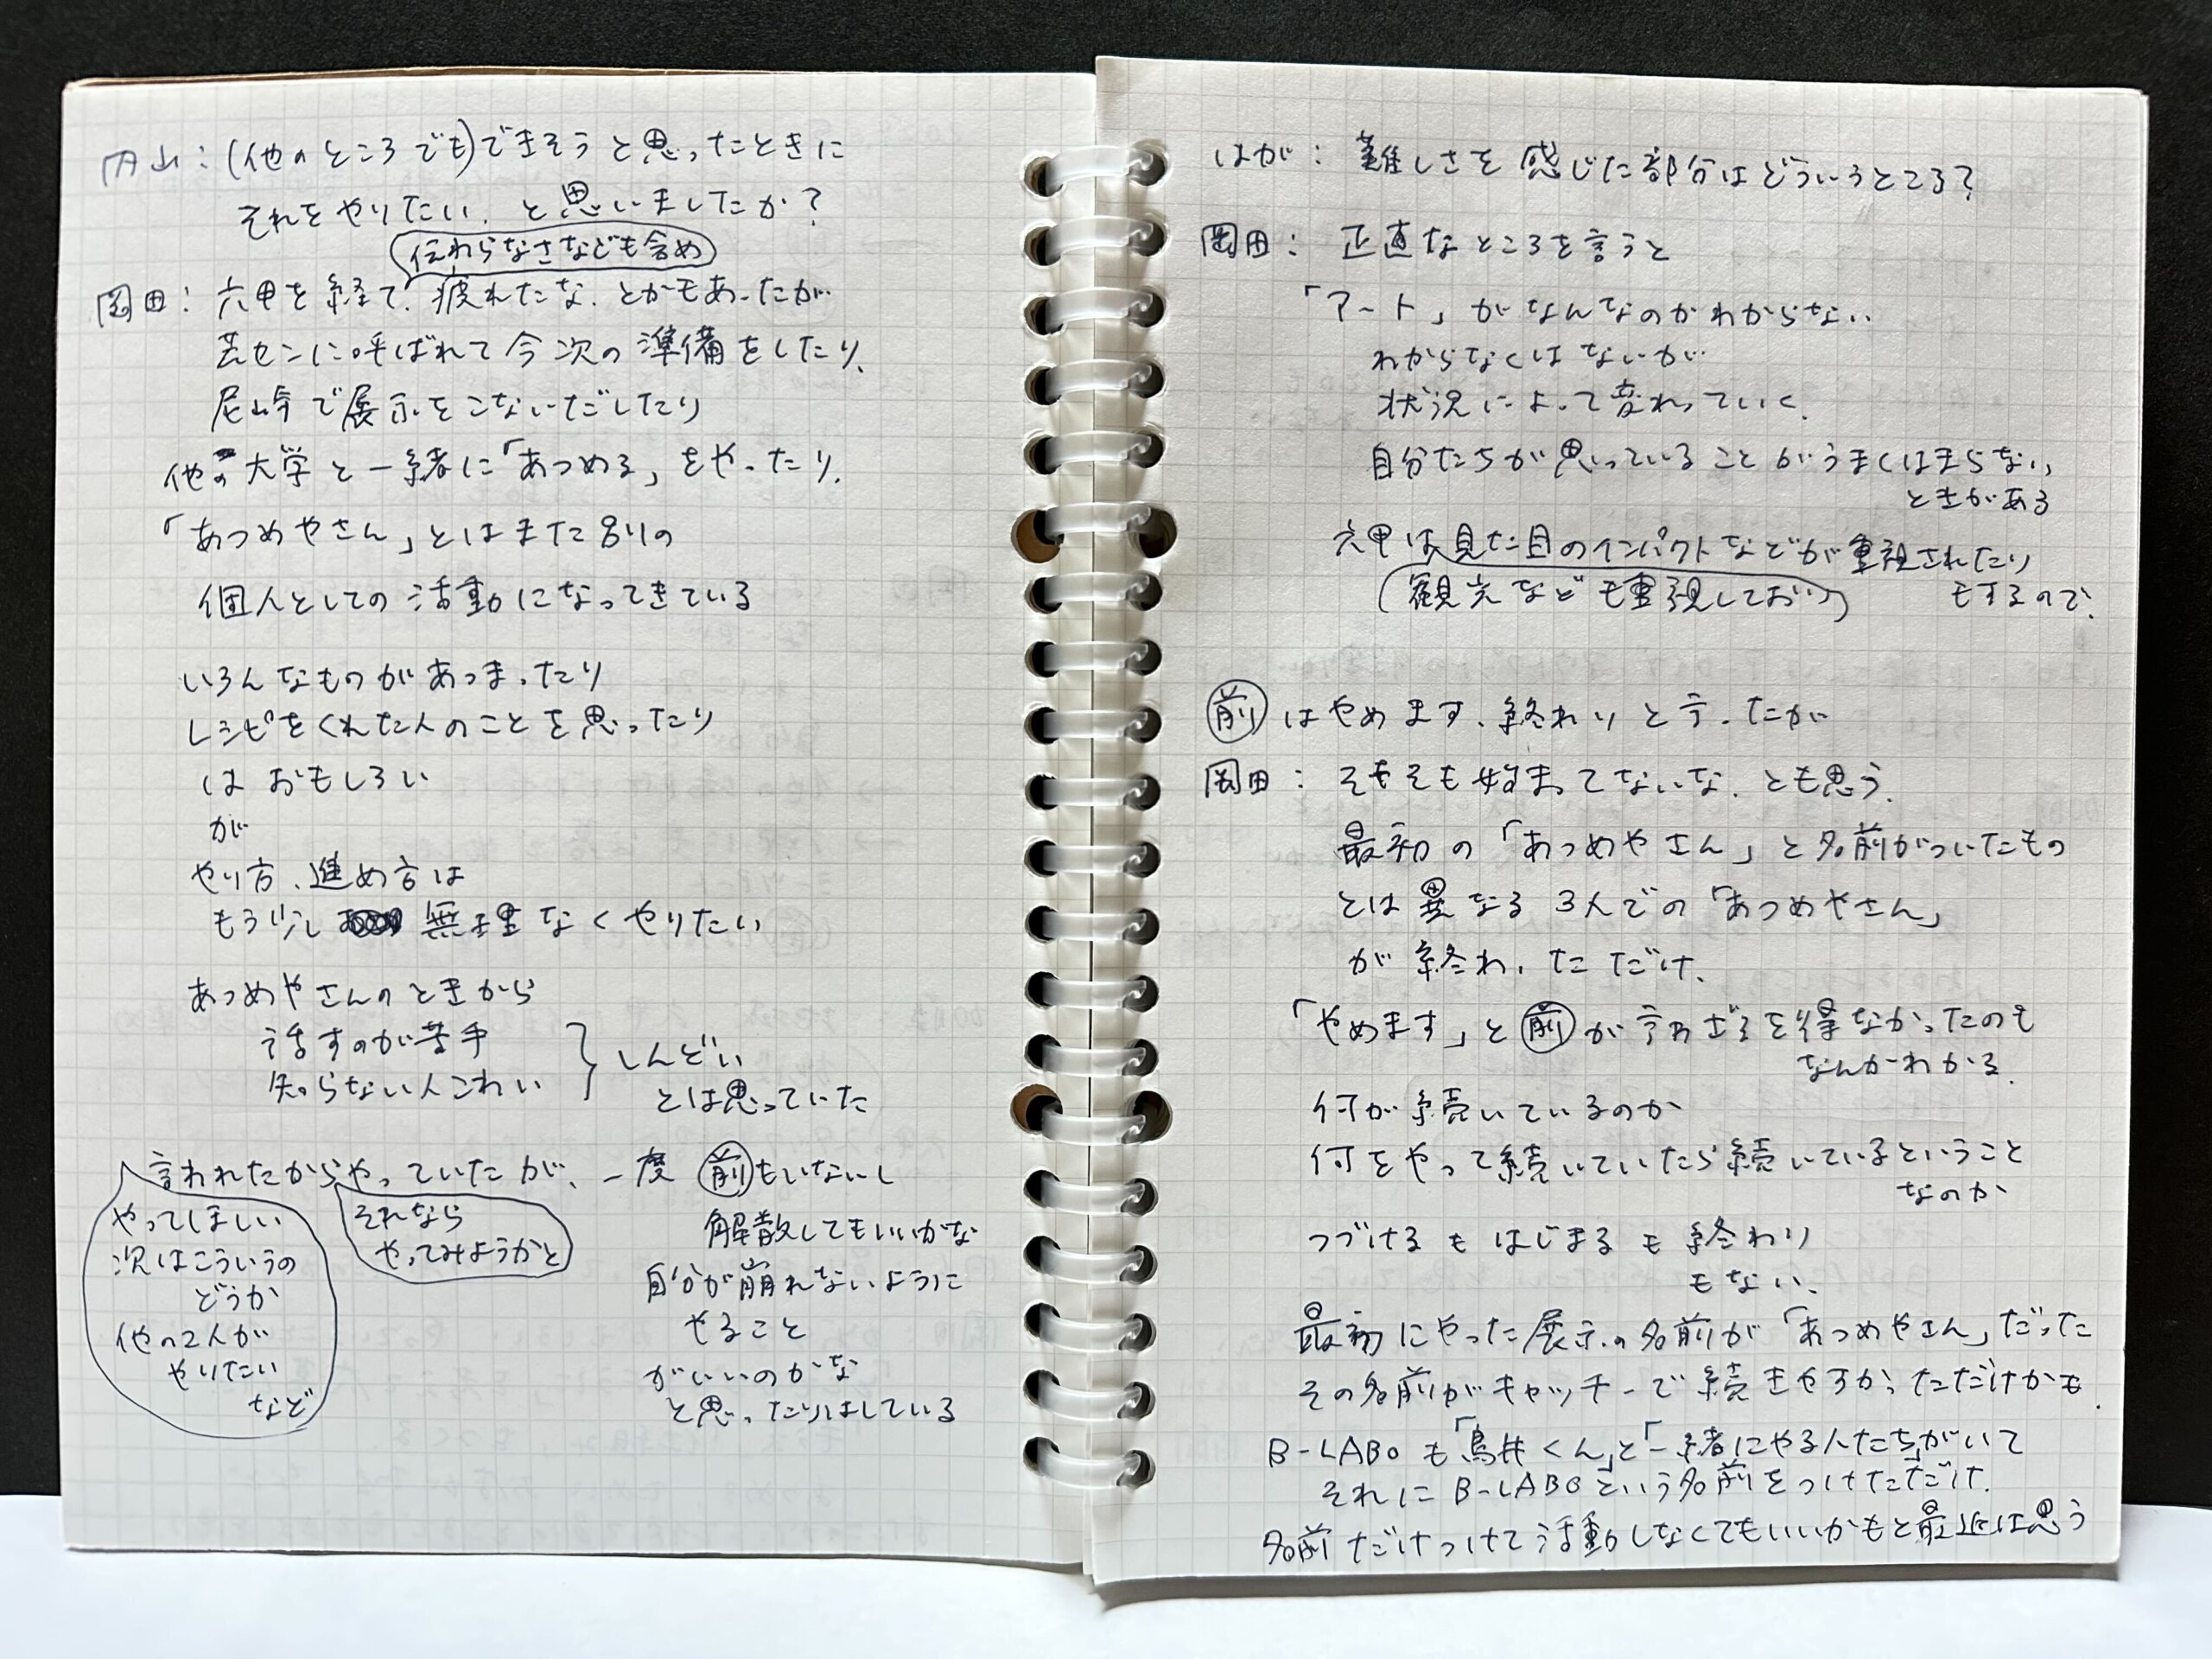 内山：(他のところでも)できそうと思ったときに
それをやりたい、と思いましたか？
伝わらなさなども含め
岡田：六甲を経て、疲れたな、とかもあったが
芸センに呼ばれて今次の準備をしたり、
尼崎で展示をこないだしたり
他の大学と一緒に「あつめる」をやったり、
「あつめやさん」とはまた別の
個人としての活動になってきている
いろんなものがあつまったり
レシピをくれた人のことを思ったり
はおもしろい
が
やり方、進め方は
もう少し 無理なくやりたい
あつめやさんのときから
話すのが苦手
知らない人こわい
しんどい
とは思っていた
言われたからやっていたが、一度 前もいないし
やってほしい
次はこういうの
どうか
他の2人が
やりたい
など
それなら
やってみようかと
解散してもいいかな
自分が崩れないように
やること
がいいのかな
と思ったりはしている
はが：難しさを感じた部分はどういうところ？
岡田：正直なところを言うと
「アート」がなんなのかわからない
わからなくはないが
状況によって変わっていく、
自分たちが思っていることがうまくはまらない
ときがある
六甲は見た目のインパクトなどが重視されたり
もするので、
(観光なども重視しており)
前はやめます、終わりと言ったが
岡田：そもそも始まってないな、とも思う、
最初の「あつめやさん」と名前がついたもの
とは異なる3人での「あつめやさん」
が終わっただけ、
「やめます」と前が言わざるを得なかったのも
なんかわかる、
何が続いているのか
何をやって続いていたら続いているということ
なのか
つづけるもはじまるも終わり
もない、
最初にやった展示の名前が「あつめやさん」だった
その名前がキャッチーで続きやすかっただけかも、
B-LABOも「鳥井くん」と「一緒にやる人たち」がいて
それにB-LABOという名前をつけただけ、
名前だけつけて活動しなくてもいいかもと最近は思う